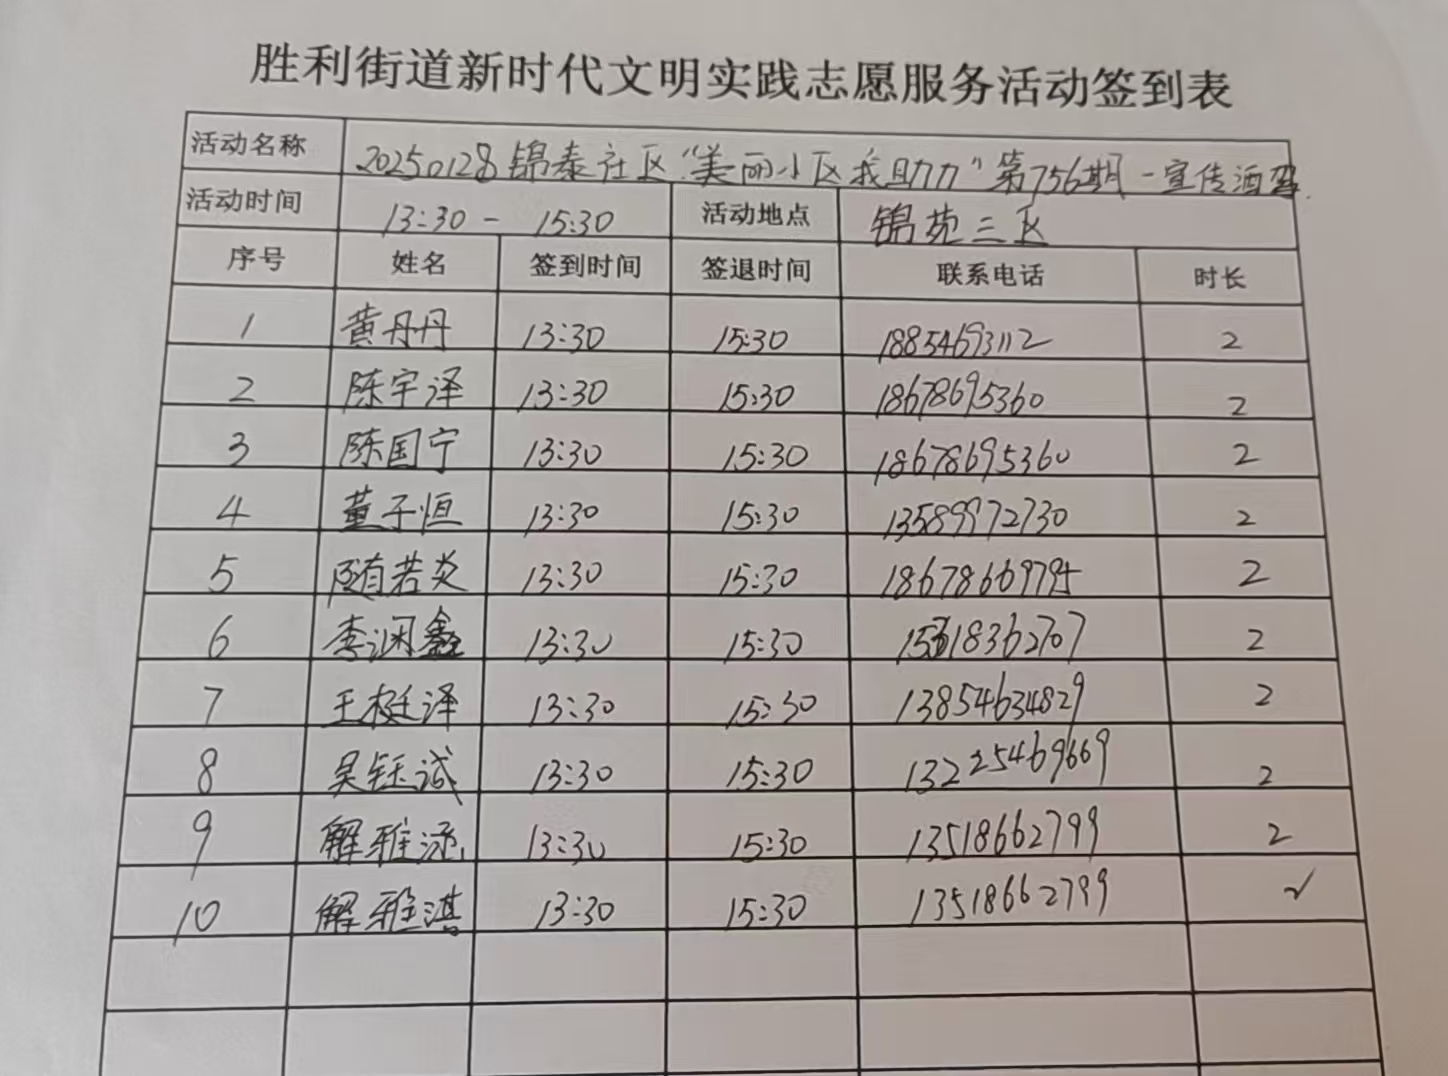 胜利街道新时代文明实践志愿服务活动签到表
活动名称 20250128锦泰社区"美丽小区我助力"第756期-宣传酒驾
活动时间 13:30 - 15:30 活动地点 锦苑三区
序号 姓名 签到时间 签退时间 联系电话 时长
1 黄丹丹 13:30 15:30 18854693112 2
2 陈宇泽 13:30 15:30 18678695360 2
3 陈国宁 13:30 15:30 18678695360 2
4 董子恒 13:30 15:30 13589972730 2
5 随若炎 13:30 15:30 2
6 李润鑫 13:30 15:30 15318362707 2
7 王梃泽 13:30 15:30 13854634829 2
8 吴钰诚 13:30 15:30 13225469669 2
9 解雅涵 13:30 15:30 13518662799 2
10 解雅淇 13:30 15:30 13518662799 2